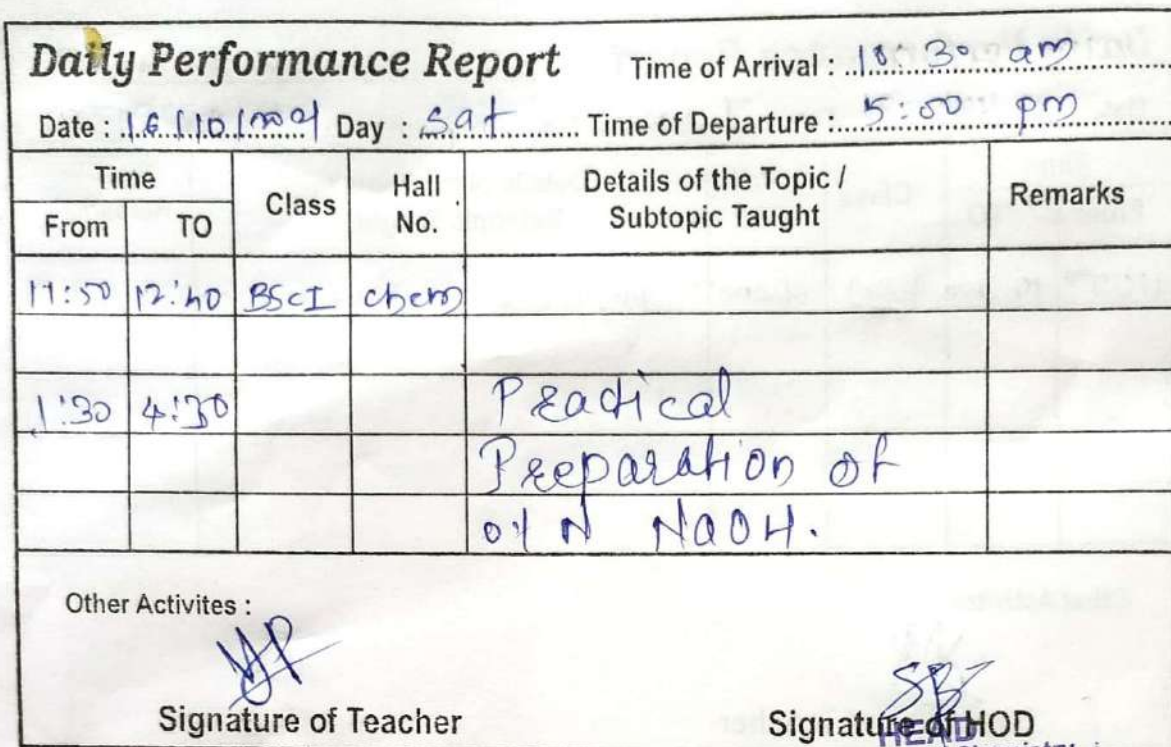 Daily Performance Report Time of Arrival : 10:30 am
Day : Sat Time of Departure : 5:00 pm
Date : 16/10/
Time Class Hall No. Details of the Topic / Subtopic Taught Remarks
From TO
11:50 12:40 BScI chem
1:30 4:30 Practical
Preparation of
0.1 N NaOH.
Other Activites :
Signature of Teacher Signature of HOD
HEAD